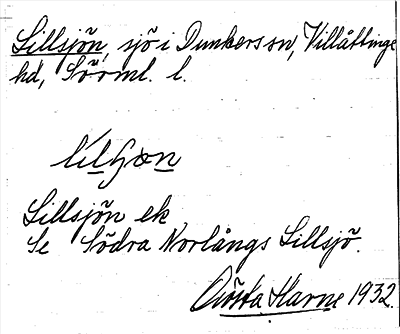 Lillsjön, sjö i Dunkers sn, Villåttinge
hd, Sörml. l.
Lillsjön ek
Se Södra Norlångs Lillsjö.
Harne 1932.